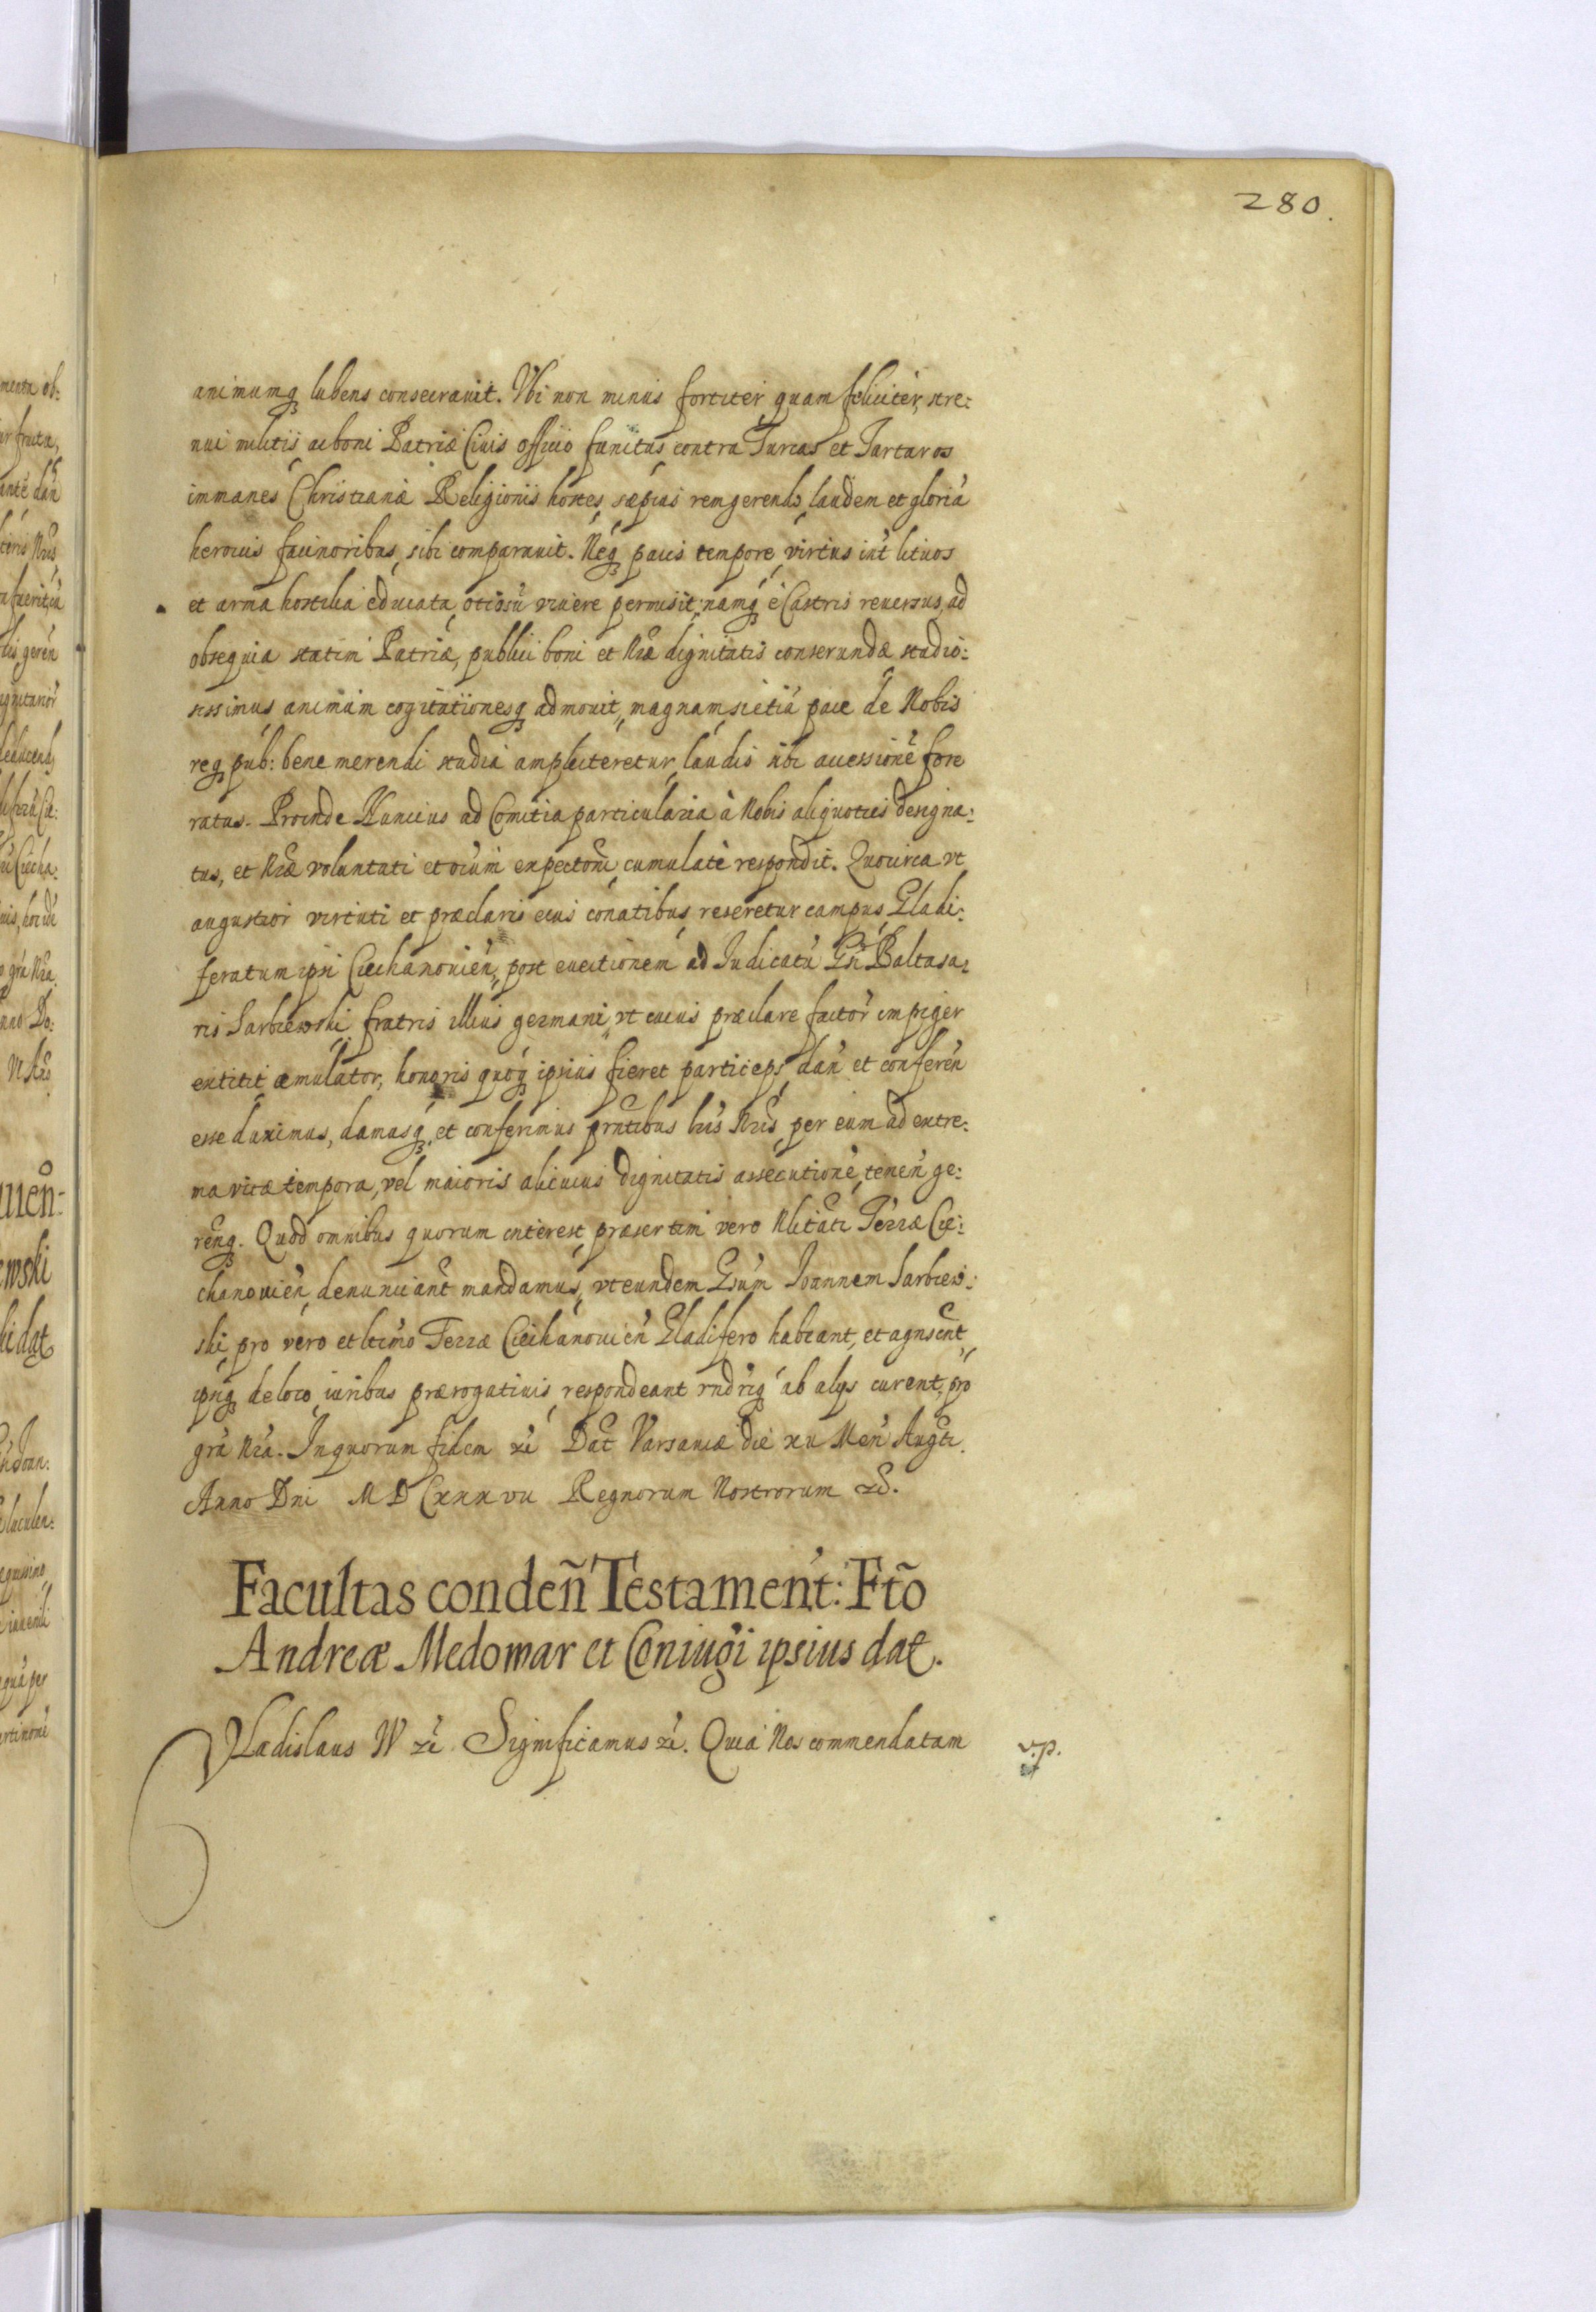 280.
animumq lubens consecrauit. Vbi non minus fortiter quam feliciter, stre:
nui militis ac boni Patriæ Ciuis officio functus contra Turcas et Tartaros
immanes Christianæ Religionis hostes, sæpius rem gerendo, laudem et gloriã
heroicis facinoribus, sibi comparauit. Neq pacis tempore, virtus inť lituos
et arma hostilia educata, otiosũ viuere permisit, namq è Castris reuersus, ad
obsequia statim Patriæ, publici boni et Nræ dignitatis conseruandæ studio:
sissimus animum cogitationesq admouit, magnam si etiã pace de Nobis
req pub: bene merendi studia amplecteretur, laudis sibi accessionẽ fore
ratus. Proinde Nuncius ad Comitia particularia à Nobis aliquoties designa:
tus, et Nræ voluntati et oĩum expectoni cumulatè respondit. Quocirca vt
angustior virtuti et præclaris eius conatibus reseretur campus, Gladi:
feratum ipsi Ciechanouieñ, post euectionem ad Iudicatũ Gsi Baltasa:
ris Sarbiewski, fratris illius germani, vt cuius præclare factor̃ impiger
extitit æmulator, honoris quoq ipsius fieret particeps, dañ et confereñ
esse duximus, damusq et conferimus pntibus lris Nris, per eum ad extre:
ma vitæ tempora, vel maioris alicuius dignitatis assecutionẽ, teneñ ge:
reñq. Quod omnibus quorum interest, præsertim vero Nlitati Terræ Cie:
chanouieñ, denunciant mandamus, vt eundem Gsum Ioannem Sarbiew:
ski pro vero et ltimo Terræ Ciechanouieñ Gladifero habeant, et agnscent,
ipsiq de loco, iuribus prærogatiuis, respondeant rndriq ab alijs curent, pro
grã Nra. In quorum fidem zc Dat Varsauiæ die xv Meñ Augti.
Anno Dni MDCxxxvii Regnorum Nostrorum zc.
Facultas condeñ Testament: Fto
Andreæ Medomar et Coniugi ipsius dat.
Vladislaus IV zc Significamus zc. Quia Nos commendatam
v.p.